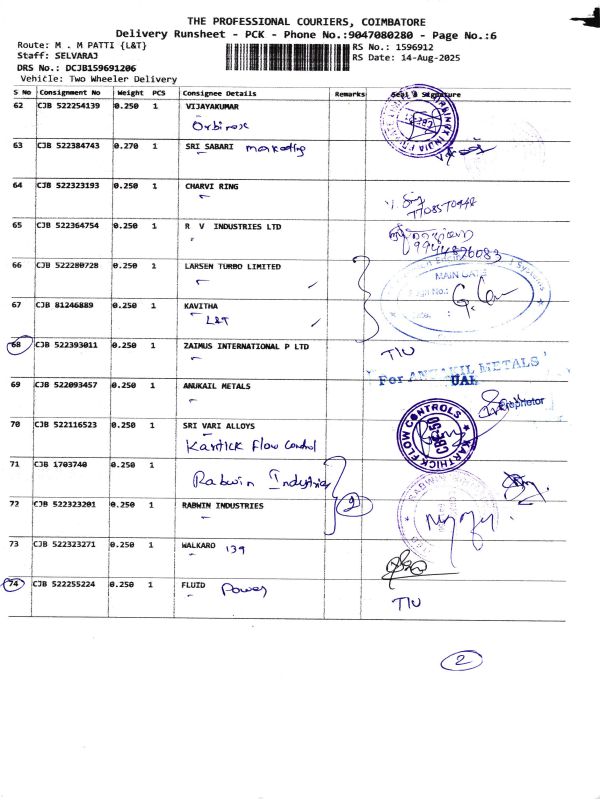 THE PROFESSIONAL COURIERS, COIMBATORE
Delivery Runsheet - PCK - Phone No.:9047080280 - Page No.:6
Route: M . M PATTI {L&T}
RS No.: 1596912
Staff: SELVARAJ
RS Date: 14-Aug-2025
DRS No.: DCJB159691206
Vehicle: Two Wheeler Delivery
S No Consignment No Weight PCS Consignee Details Remarks Seal & Signature
62 CJB 522254139 0.250 1 VIJAYAKUMAR
63 CJB 522384743 0.270 1 SRI SABARI marketing
64 CJB 522323193 0.250 1 CHARVI RING
7708570448
65 CJB 522364754 0.250 1 R V INDUSTRIES LTD
9944876083
66 CJB 522280728 0.250 1 LARSEN TURBO LIMITED
MAIN GATE
67 CJB 81246889 0.250 1 KAVITHA
L&T
68 CJB 522393011 0.250 1 ZAIMUS INTERNATIONAL P LTD
TIU
For ANUKAIL METALS
69 CJB 522093457 0.250 1 ANUKAIL METALS
Proprietor
70 CJB 522116523 0.250 1 SRI VARI ALLOYS
Kartick Flow Control
KARTHICK FLOW CONTROLS
CBE-50
71 CJB 1703740 0.250 1 Rabwin Industries
72 CJB 522323201 0.250 1 RABWIN INDUSTRIES
2
73 CJB 522323271 0.250 1 WALKARO 139
74 CJB 522255224 0.250 1 FLUID Power
TIU
2